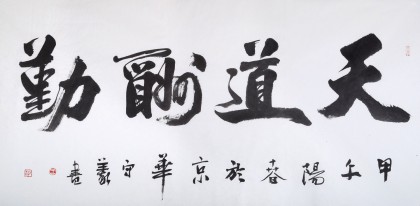 天道酬勤
甲午陽春於京華守義書